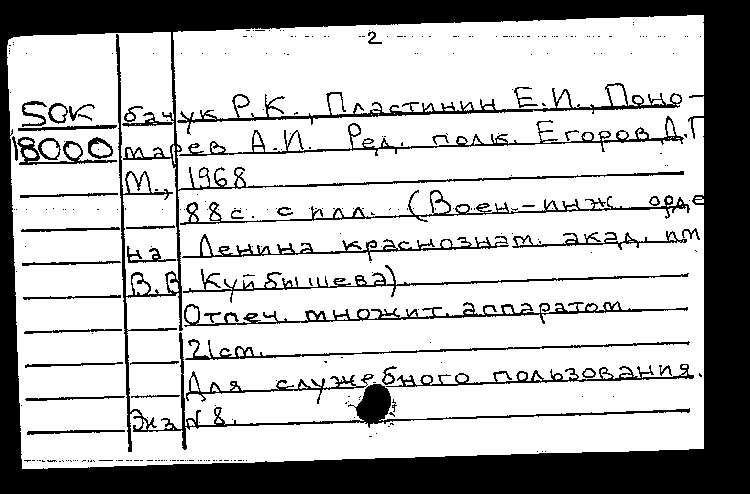 2
SOK бачук Р.К., Пластинин Е.И., Поно-
18000 марев А.И. Ред. полк. Егоров Д.Г
М., 1968
88с. с илл. (Воен.-инж. орде
на Ленина краснознам. акад. им
В.В. Куйбышева)
Отпеч. множит. аппаратом
21см.
Для служебного пользования.
Экз №8.